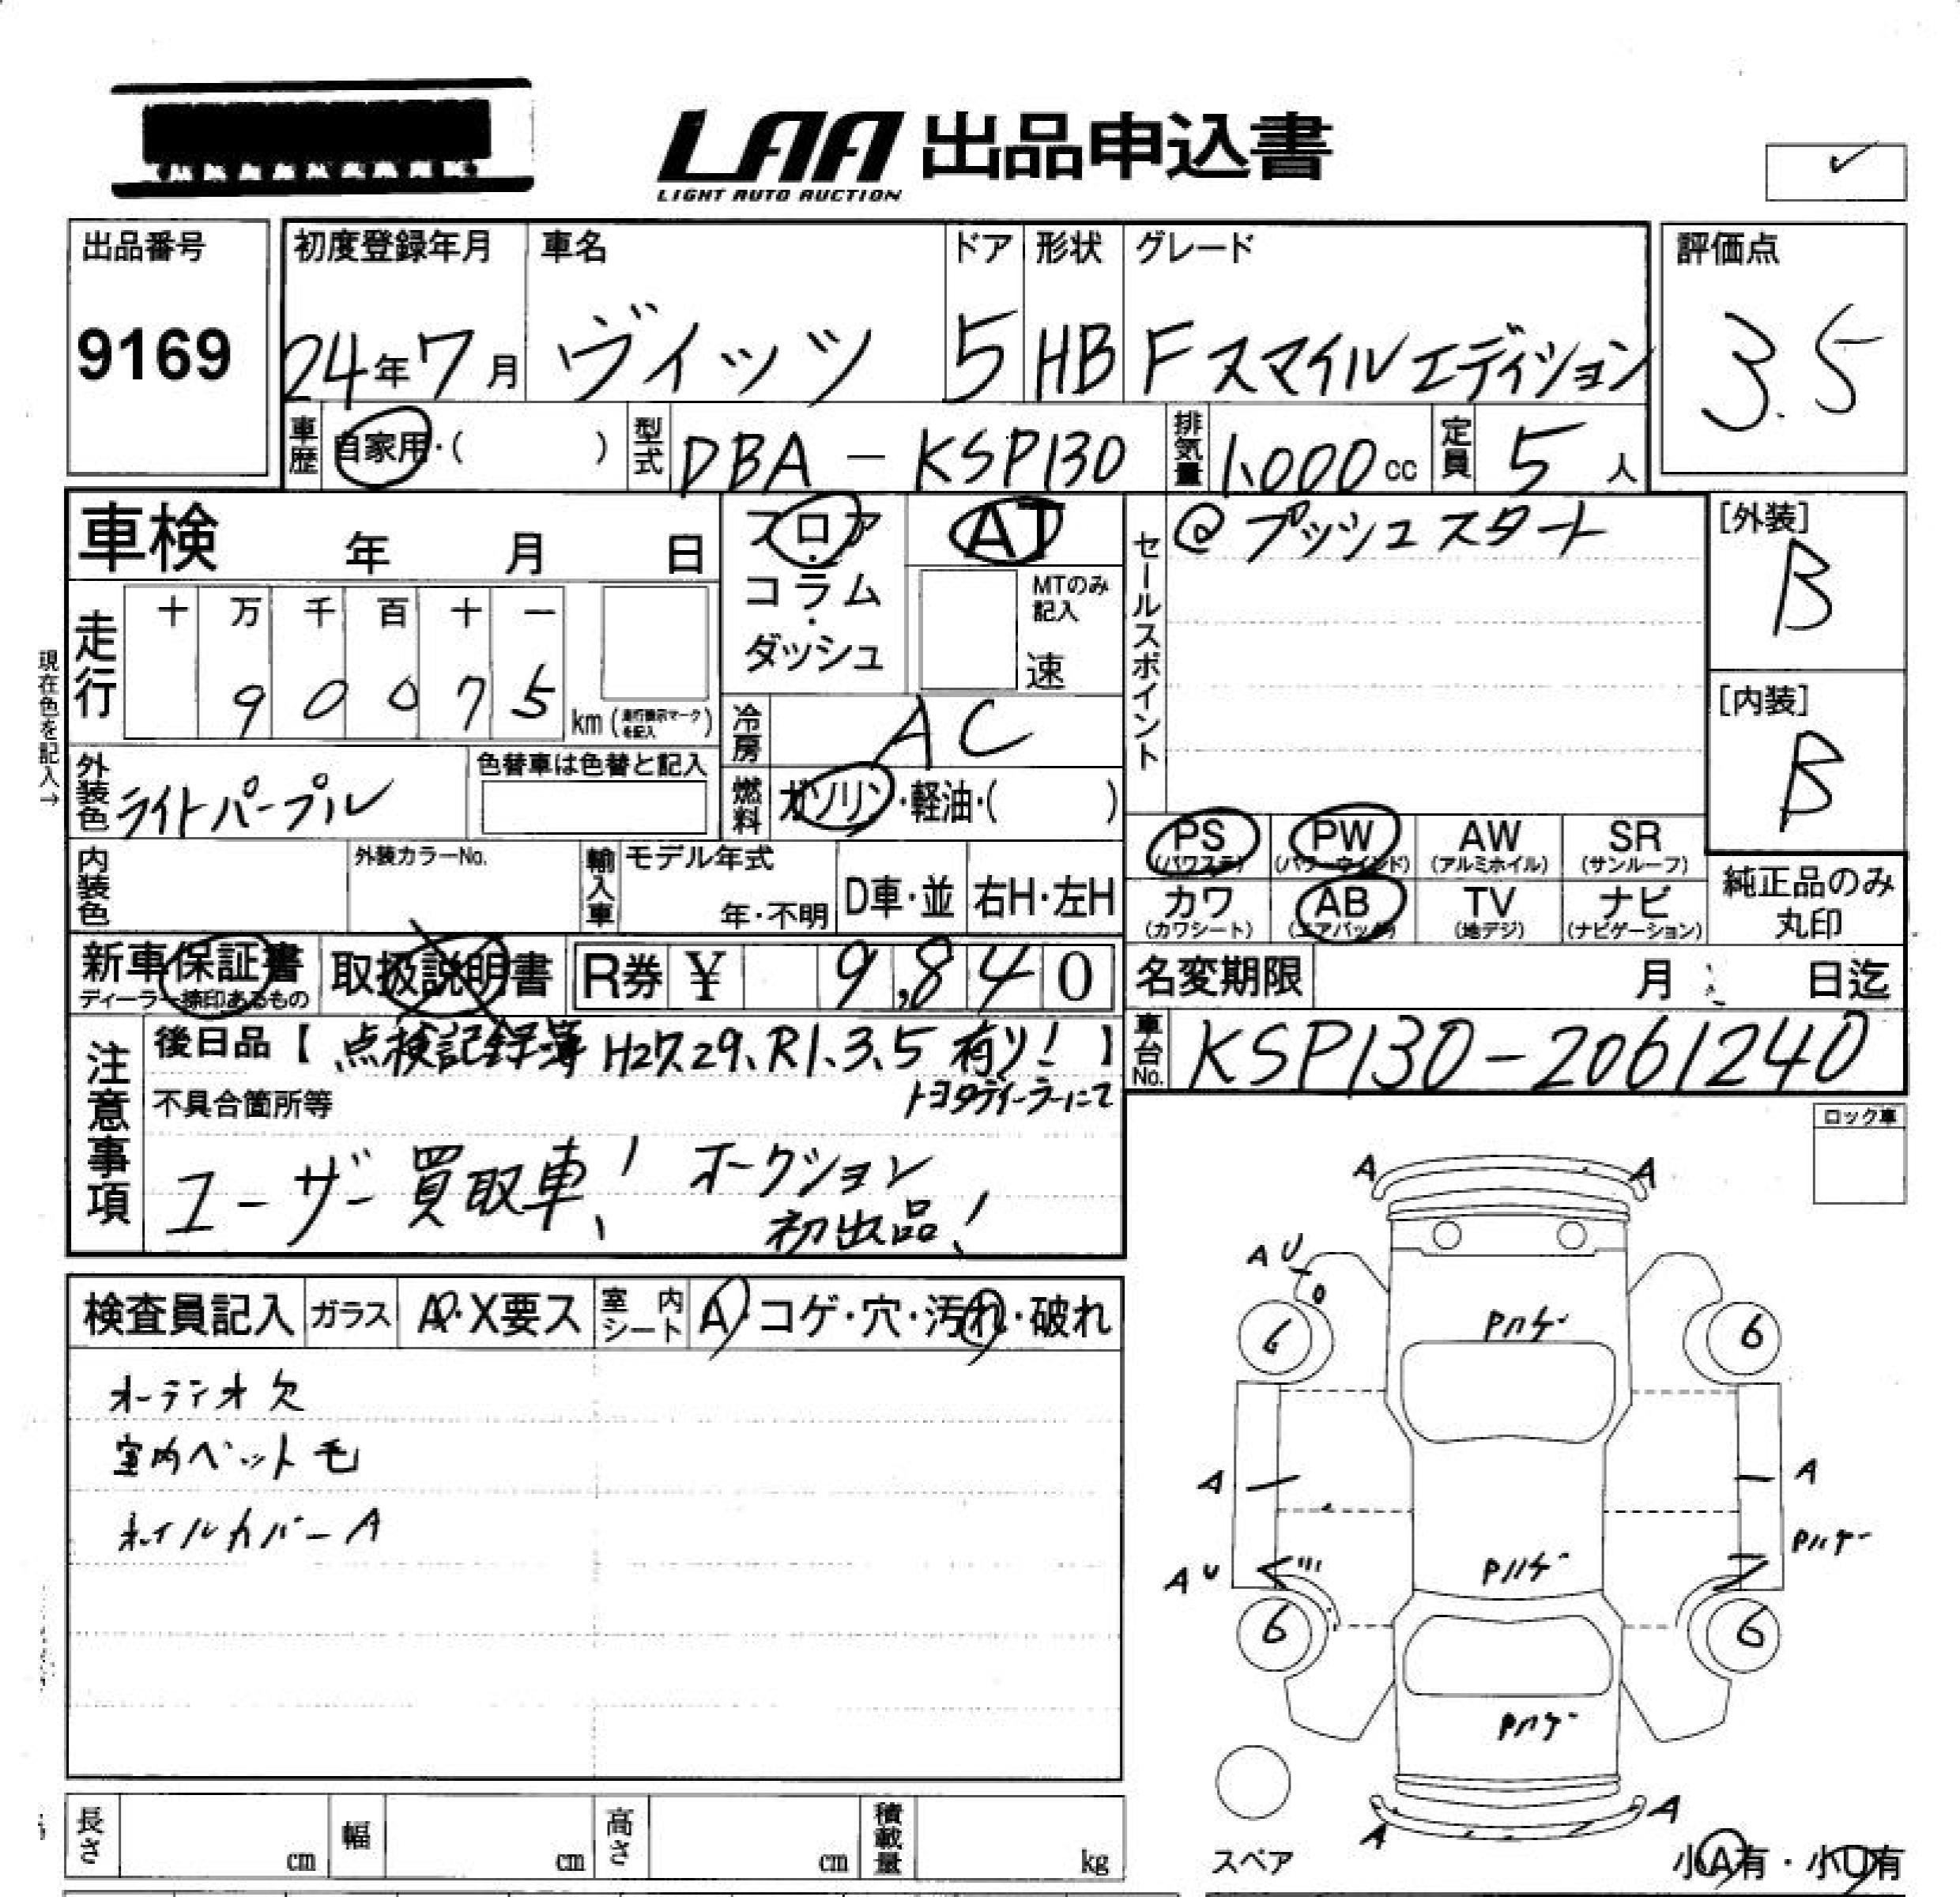 LAA 出品申込書
LIGHT AUTO AUCTION
出品番号
9169
初度登録年月
24年7月
車名
ヴィッツ
ドア
5
形状
HB
グレード
Fスマイルエディション
評価点
3.5
車歴
自家用・( )
型式
DBA-KSP130
排気量
1,000cc
定員
5人
車検 年 月 日
フロア・コラム・ダッシュ
AT
MTのみ記入
速
走行
十 万 千 百 十 一
9 0 0 7 5
km (走行表示マークを記入)
現在色を記入→
外装色
ライトパープル
色替車は色替と記入
冷房
AC
燃料
ガソリン・軽油・( )
内装色
外装カラーNo.
輸入車
モデル年式
年・不明
D車・並
右H・左H
セールスポイント
@プッシュスタート
[外装]
B
[内装]
B
PS
(パワステ)
PW
(パワーウインド)
AW
(アルミホイル)
SR
(サンルーフ)
カワ
(カワシート)
AB
(エアバック)
TV
(地デジ)
ナビ
(ナビゲーション)
純正品のみ
丸印
新車保証書
ディーラー捺印あるもの
取扱説明書
R券 ¥ 9,840
名変期限 月 日迄
車台No.
KSP130-2061240
注意事項
後日品【点検記録簿 H27.29、R1、3、5 有り!】
トヨタディーラーにて
不具合箇所等
ユーザー買取車!、 オークション
初出品!
検査員記入
ガラス
A・X要ス
室内シート
A・コゲ・穴・汚れ・破れ
オーディオ欠
室内ペット毛
ホイルカバーA
ロック車
A A
A U
Pハゲ
6 6
A A
Pハゲ
A U
Pハゲ
6 6
Pハゲ
A A
スペア
小A有・小U有
長さ cm
幅 cm
高さ cm
積載量 kg